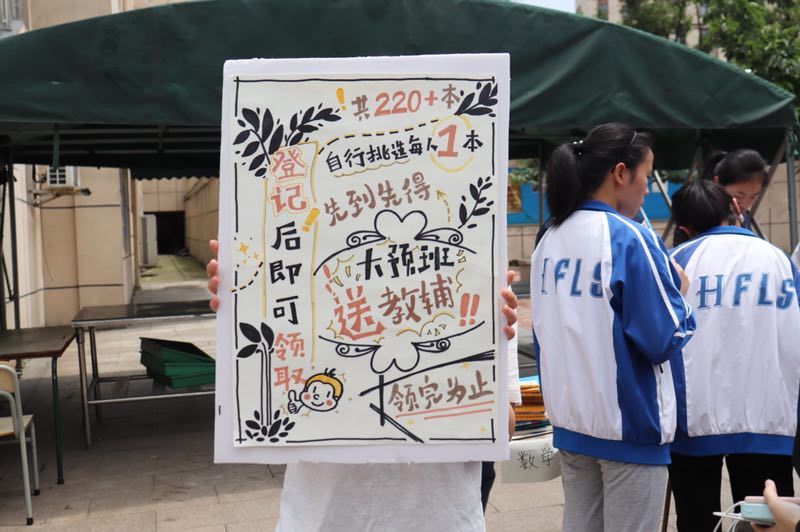 共220+本
自行挑选每人1本
先到先得
登记后即可领取
大预班
送教辅!!
领完为止
HFLS
HFLS
数学